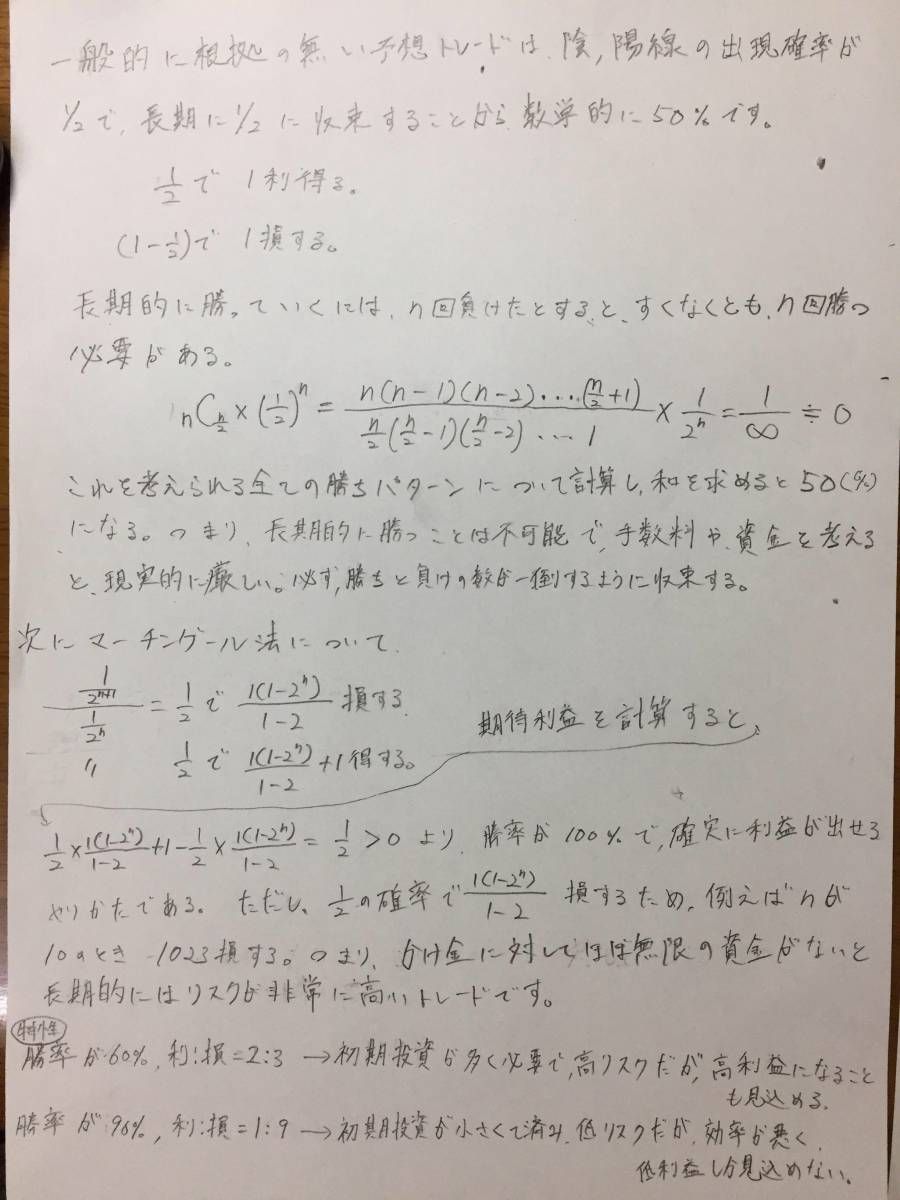 一般的に根拠の無い予想トレードは、陰,陽線の出現確率が
1/2で、長期に1/2に収束することから数学的に50%です。
1/2で 1利得る。
(1-1/2)で 1損する。
長期的に勝っていくには、n回負けたとすると、すくなくとも、n回勝つ
必要がある。
nCn/2×(1/2)^n = n(n-1)(n-2)...(n/2+1) / n/2(n/2-1)(n/2-2)...1 × 1/2^n = 1/∞ ≒ 0
これを考えられる全ての勝ちパターンについて計算し、和を求めると50(%)
になる。つまり、長期的に勝つことは不可能で、手数料や、資金を考える
と、現実的に厳しい。必ず、勝ちと負けの数が一倒するように収束する。
次にマーチンゲール法について
1/2^(n+1) / 1/2^n = 1/2で 1(1-2^n)/1-2 損する。
期待利益を計算すると
〃 1/2で 1(1-2^n)/1-2 +1得する。
1/2×1(1-2^n)/1-2+1-1/2×1(1-2^n)/1-2=1/2>0より、勝率が100%で、確実に利益が出せる
やりかたである。ただし、1/2の確率で1(1-2^n)/1-2 損するため、例えばnが
10のとき -1023損する。つまり、かけ金に対してほぼ無限の資金がないと
長期的にはリスクが非常に高いトレードです。
勝率が60%,利:損=2:3 →初期投資が多く必要で,高リスクだが,高利益になること
も見込める.
勝率が90%,利:損=1:9 →初期投資が小さくて済み、低リスクだが、効率が悪く
低利益しか見込めない。